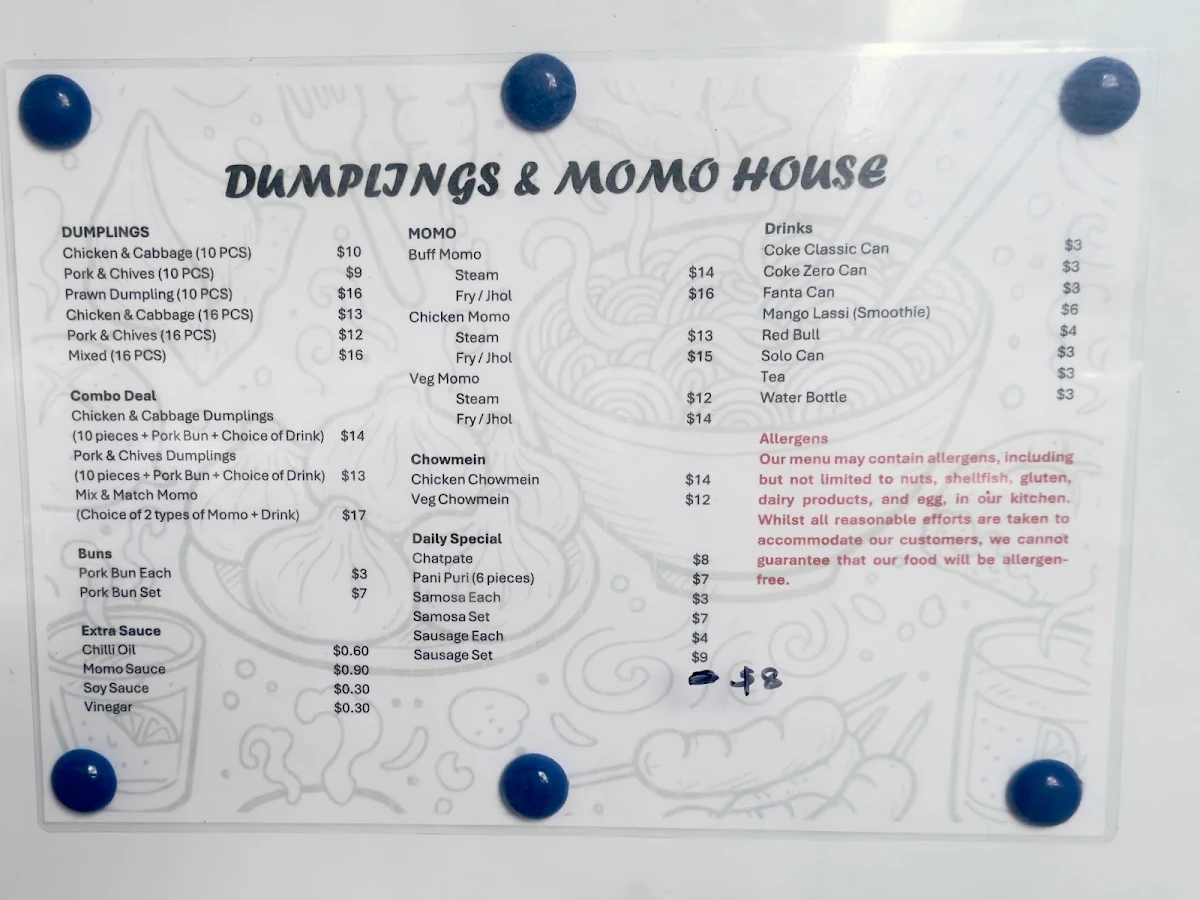 DUMPLINGS & MOMO HOUSE
DUMPLINGS
Chicken & Cabbage (10 PCS) $10
Pork & Chives (10 PCS) $9
Prawn Dumpling (10 PCS) $16
Chicken & Cabbage (16 PCS) $13
Pork & Chives (16 PCS) $12
Mixed (16 PCS) $16
Combo Deal
Chicken & Cabbage Dumplings
(10 pieces + Pork Bun + Choice of Drink) $14
Pork & Chives Dumplings
(10 pieces + Pork Bun + Choice of Drink) $13
Mix & Match Momo
(Choice of 2 types of Momo + Drink) $17
Buns
Pork Bun Each $3
Pork Bun Set $7
Extra Sauce
Chilli Oil $0.60
Momo Sauce $0.90
Soy Sauce $0.30
Vinegar $0.30
MOMO
Buff Momo
Steam $14
Fry / Jhol $16
Chicken Momo
Steam $13
Fry / Jhol $15
Veg Momo
Steam $12
Fry / Jhol $14
Chowmein
Chicken Chowmein $14
Veg Chowmein $12
Daily Special
Chatpate $8
Pani Puri (6 pieces) $7
Samosa Each $3
Samosa Set $7
Sausage Each $4
Sausage Set $9
$8
Drinks
Coke Classic Can $3
Coke Zero Can $3
Fanta Can $3
Mango Lassi (Smoothie) $6
Red Bull $4
Solo Can $3
Tea $3
Water Bottle $3
Allergens
Our menu may contain allergens, including
but not limited to nuts, shellfish, gluten,
dairy products, and egg, in our kitchen.
Whilst all reasonable efforts are taken to
accommodate our customers, we cannot
guarantee that our food will be allergen-
free.